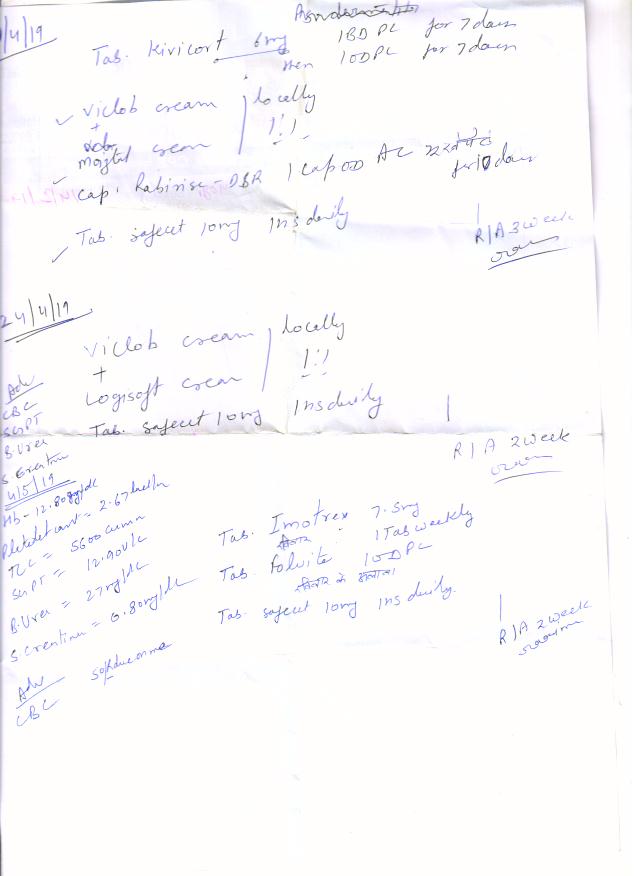 /4/19
Tab. Kivicort 6mg 1BD PC for 7 days
then 1OD PC for 7 days
Viclob cream locally
+
cream 1!1
Cap. Rabirise-DSR 1 cap OD AC
for 10 days
Tab. safecet 10mg 1 HS daily
R/A 3 week
24/4/19
Viclob cream locally
+
Logisoft cream 1!1
Tab. safecet 10mg 1 HS daily
R/A 2 week
Adv
CBC
SGPT
B. Urea
S. Creatinin
4/5/19
Hb - 12.80 gm/dL
Platelet count = 2.67 lac/
TLC = 5600 cumm
SGPT = 12.90 U/L
B. Urea = 27 mg/dL
S. Creatinin = 0.80 mg/dL
Tab. Imotrex 7.5mg
1 Tab weekly
Tab. Folvite 1OD PC
रविवार के अलावा
Tab. safecet 10mg 1 HS daily.
R/A 2 week
Adv
CBC